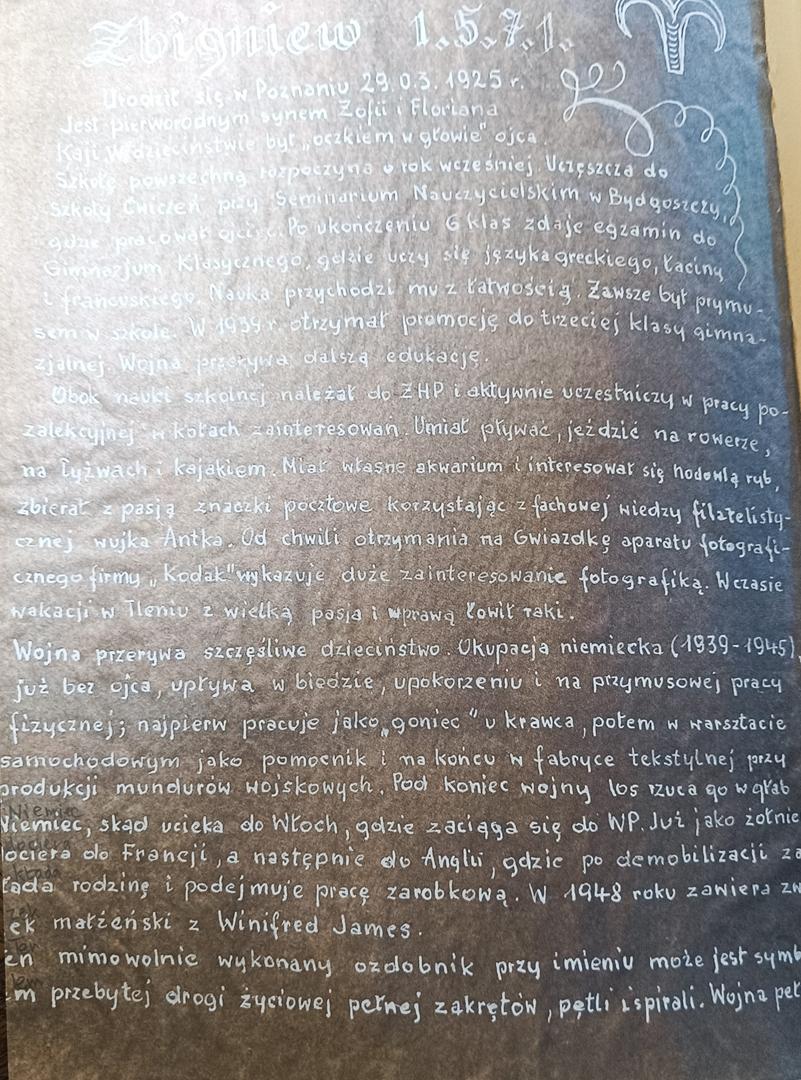 Zbigniew 1.5.7.1.
Urodził się w Poznaniu 29.03.1925 r.
Jest pierworodnym synem Zofii i Floriana
Kaji. W dzieciństwie był „oczkiem w głowie" ojca.
Szkołę powszechną rozpoczyna o rok wcześniej. Uczęszcza do
Szkoły Ćwiczeń przy Seminarium Nauczycielskim w Bydgoszczy,
gdzie pracował ojciec. Po ukończeniu 6 klas zdaje egzamin do
Gimnazjum Klasycznego, gdzie uczy się języka greckiego, łaciny
i francuskiego. Nauka przychodzi mu z łatwością. Zawsze był prymu-
sem w szkole. W 1939 r. otrzymał promocję do trzeciej klasy gimna-
zjalnej. Wojna przerywa dalszą edukację.
Obok nauki szkolnej należał do ZHP i aktywnie uczestniczy w pracy po-
zalekcyjnej w kołach zainteresowań. Umiał pływać, jeździć na rowerze,
na łyżwach i kajakiem. Miał własne akwarium i interesował się hodowlą ryb,
zbierał z pasją znaczki pocztowe korzystając z fachowej wiedzy filatelisty-
cznej wujka Antka. Od chwili otrzymania na Gwiazdkę aparatu fotografi-
cznego firmy „Kodak" wykazuje duże zainteresowanie fotografiką. W czasie
wakacji w Tleniu z wielką pasją i wprawą łowił raki.
Wojna przerywa szczęśliwe dzieciństwo. Okupacja niemiecka (1939-1945),
już bez ojca, upływa w biedzie, upokorzeniu i na przymusowej pracy
fizycznej; najpierw pracuje jako „goniec" u krawca, potem w warsztacie
samochodowym jako pomocnik i na końcu w fabryce tekstylnej przy
produkcji mundurów wojskowych. Pod koniec wojny los rzuca go w głąb
Niemiec
Niemiec, skąd ucieka do Włoch, gdzie zaciąga się do WP. Już jako żołnie
ociera do Francji, a następnie do Anglii, gdzie po demobilizacji za
łada rodzinę i podejmuje pracę zarobkową. W 1948 roku zawiera zw
ek małżeński z Winifred James.
en mimowolnie wykonany ozdobnik przy imieniu może jest symb
m przebytej drogi życiowej pełnej zakrętów, pętli i spirali. Wojna peł